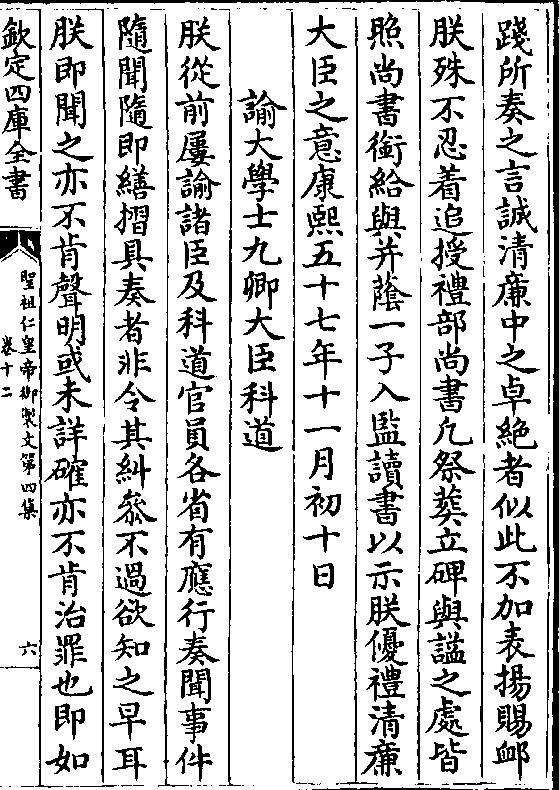 踐所奏之言誠清廉中之卓絶者似此不加表揚賜䘏
朕殊不忍着追授禮部尚書凡祭葬立碑與諡之處皆
照尚書銜給與并蔭一子入監讀書以示朕優禮清廉
大臣之意康熙五十七年十一月初十日
諭大學士九卿大臣科道
朕從前屢諭諸臣及科道官員各省有應行奏聞事件
隨聞隨即繕摺具奏者非令其糾叅不過欲知之早耳
朕即聞之亦不肯聲明或未詳確亦不肯治罪也即如
欽定四庫全書
聖祖仁皇帝御製文第四集
卷十二
六